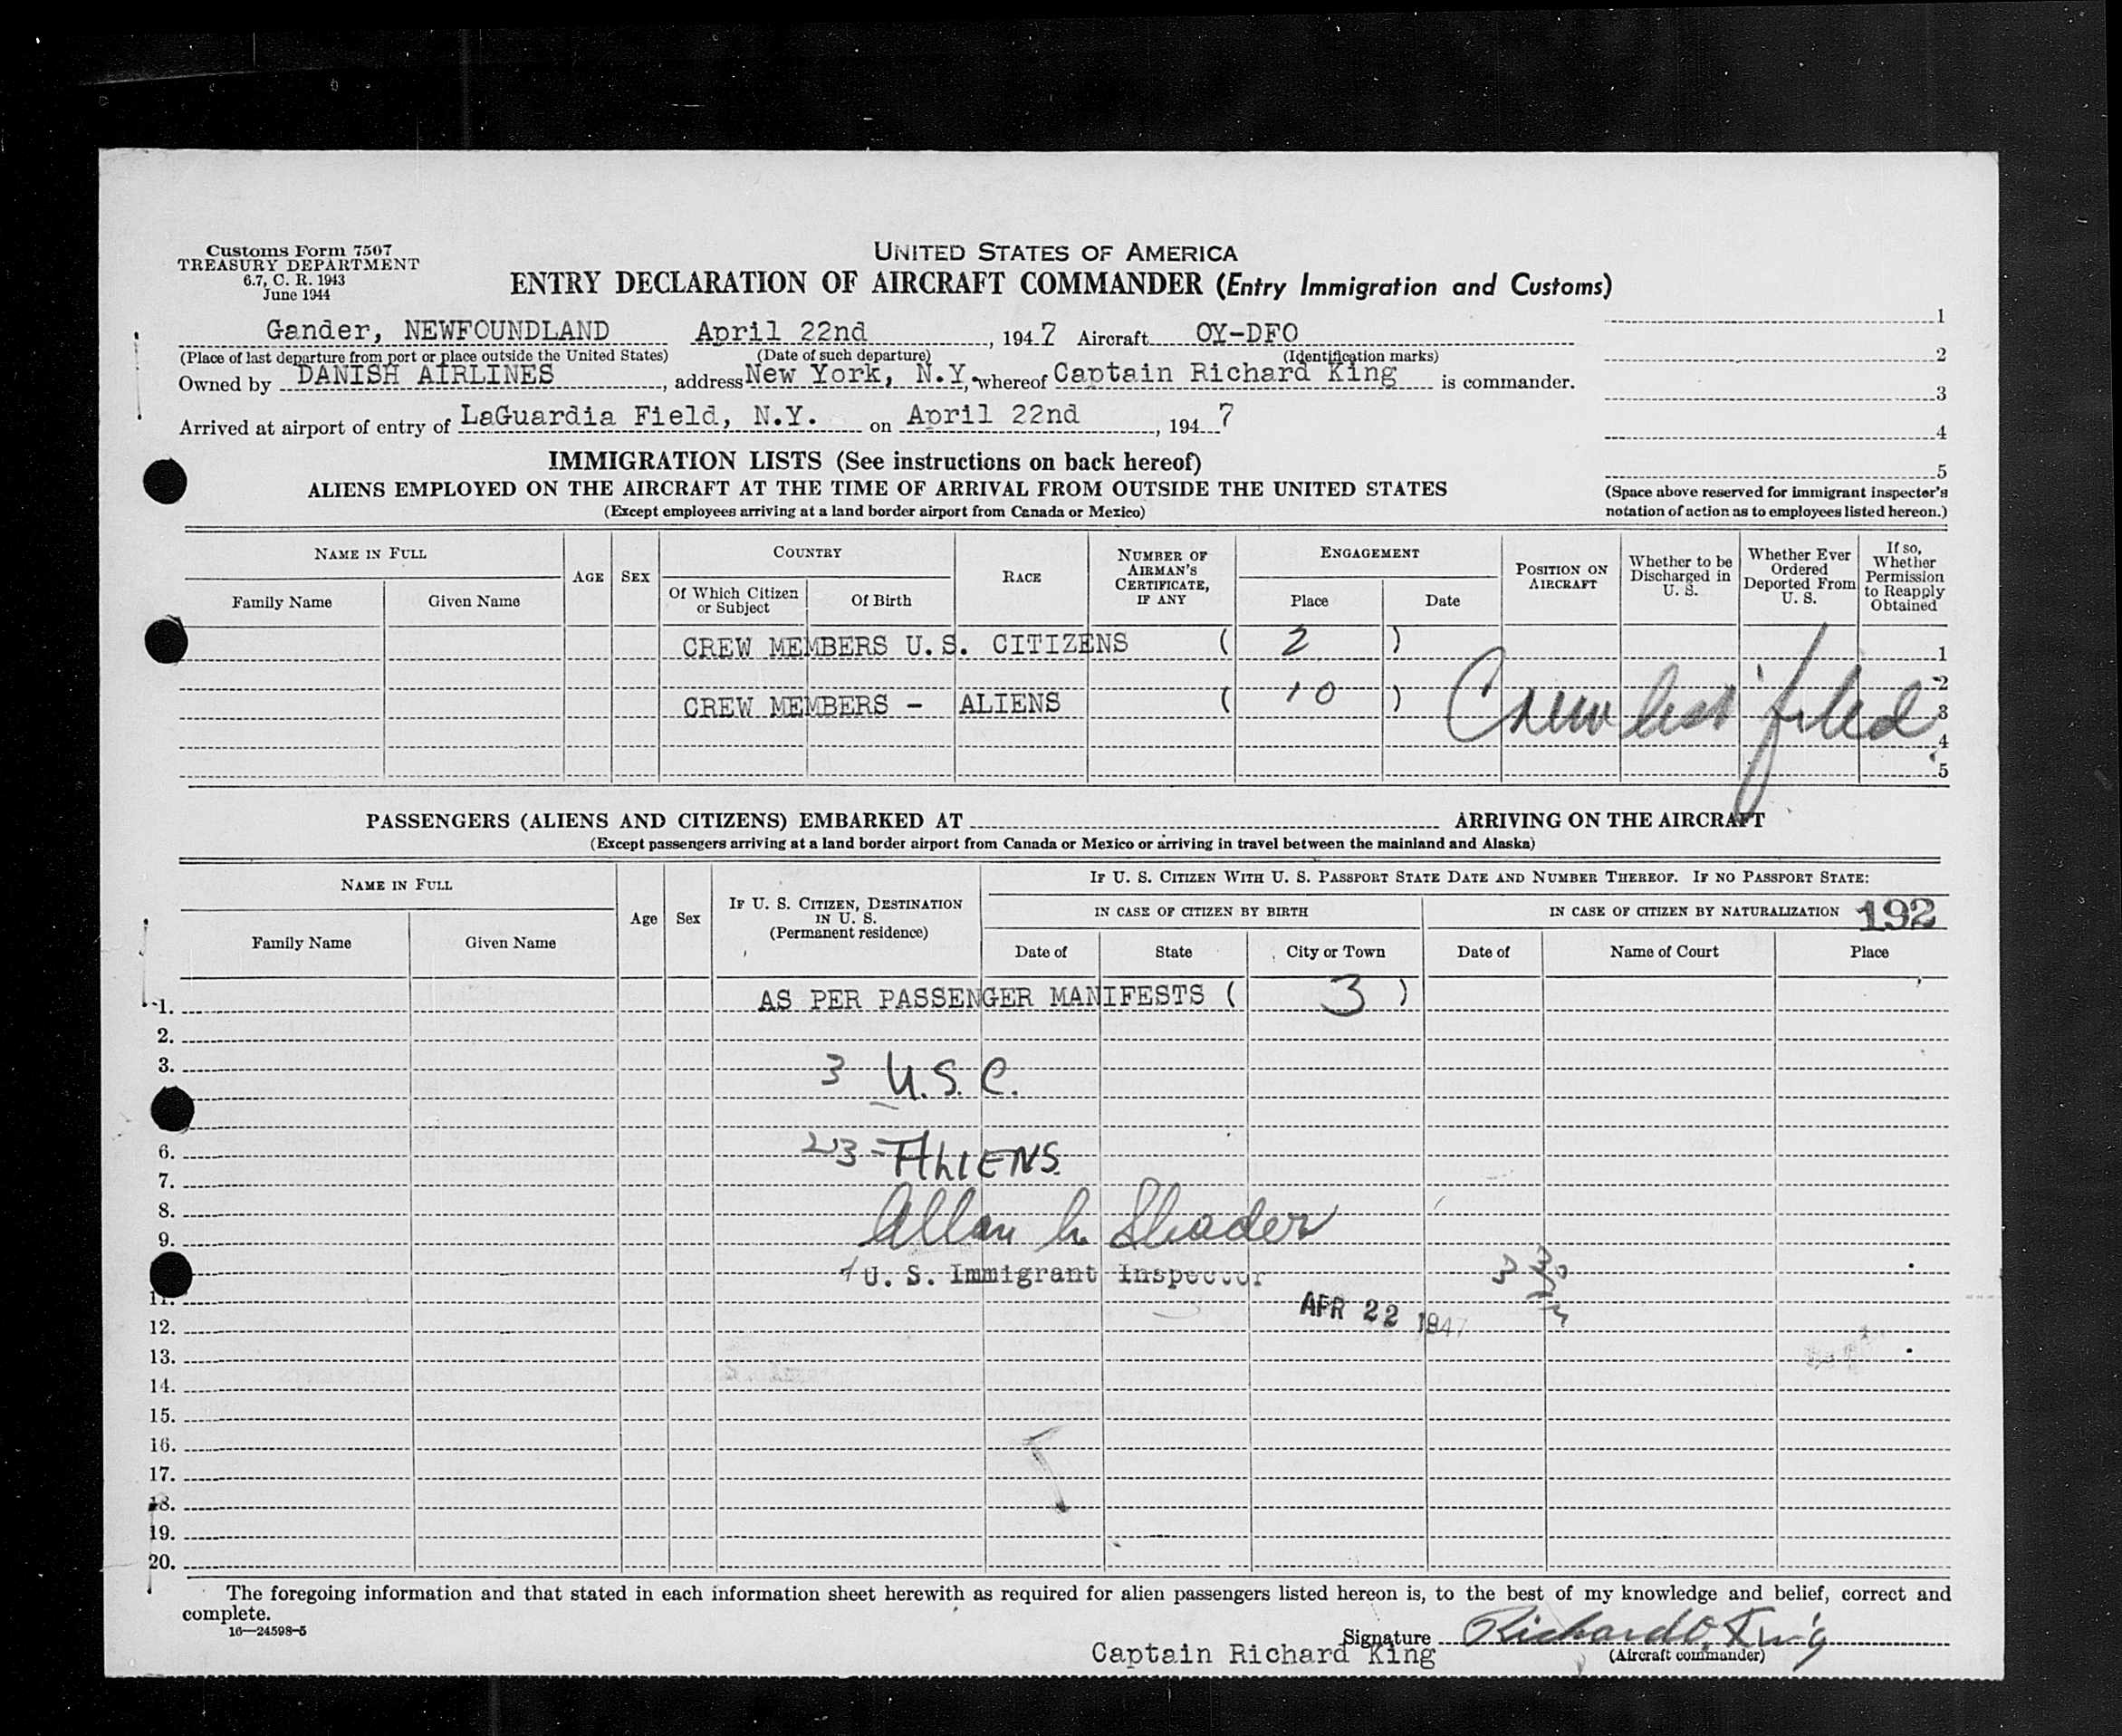 Customs Form 7507
TREASURY DEPARTMENT
6.7, C. R. 1943
June 1944
UNITED STATES OF AMERICA
ENTRY DECLARATION OF AIRCRAFT COMMANDER (Entry Immigration and Customs)
Gander, NEWFOUNDLAND April 22nd, 1947 Aircraft OY-DFO
(Place of last departure from port or place outside the United States) (Date of such departure) (Identification marks)
Owned by DANISH AIRLINES, address New York, N.Y. whereof Captain Richard King is commander.
Arrived at airport of entry of LaGuardia Field, N.Y. on April 22nd, 1947
1
2
3
4
5
(Space above reserved for immigrant inspector's
notation of action as to employees listed hereon.)
IMMIGRATION LISTS (See instructions on back hereof)
ALIENS EMPLOYED ON THE AIRCRAFT AT THE TIME OF ARRIVAL FROM OUTSIDE THE UNITED STATES
(Except employees arriving at a land border airport from Canada or Mexico)
NAME IN FULL
Family Name Given Name
AGE SEX
COUNTRY
Of Which Citizen
or Subject
Of Birth
RACE
NUMBER OF
AIRMAN'S
CERTIFICATE,
IF ANY
ENGAGEMENT
Place Date
POSITION ON
AIRCRAFT
Whether to be
Discharged in
U. S.
Whether Ever
Ordered
Deported From
U. S.
If so,
Whether
Permission
to Reapply
Obtained
CREW MEMBERS U.S. CITIZENS ( 2 ) 1
2
CREW MEMBERS - ALIENS ( 10 ) 3
Crew list filed
4
5
PASSENGERS (ALIENS AND CITIZENS) EMBARKED AT ARRIVING ON THE AIRCRAFT
(Except passengers arriving at a land border airport from Canada or Mexico or arriving in travel between the mainland and Alaska)
NAME IN FULL
Family Name Given Name
Age Sex
IF U. S. CITIZEN, DESTINATION
IN U. S.
(Permanent residence)
IF U. S. CITIZEN WITH U. S. PASSPORT STATE DATE AND NUMBER THEREOF. IF NO PASSPORT STATE:
IN CASE OF CITIZEN BY BIRTH IN CASE OF CITIZEN BY NATURALIZATION 192
Date of State City or Town Date of Name of Court Place
1. AS PER PASSENGER MANIFESTS ( 3 )
2.
3. 3 U.S.C.
6. 23 - ALIENS.
7.
8.
Allan h Shader
9.
U. S. Immigrant Inspector
11.
APR 22 1947
12.
13.
14.
15.
16.
17.
18.
19.
20.
The foregoing information and that stated in each information sheet herewith as required for alien passengers listed hereon is, to the best of my knowledge and belief, correct and
complete.
16—24598-5
Signature Richard O. King
Captain Richard King (Aircraft commander)